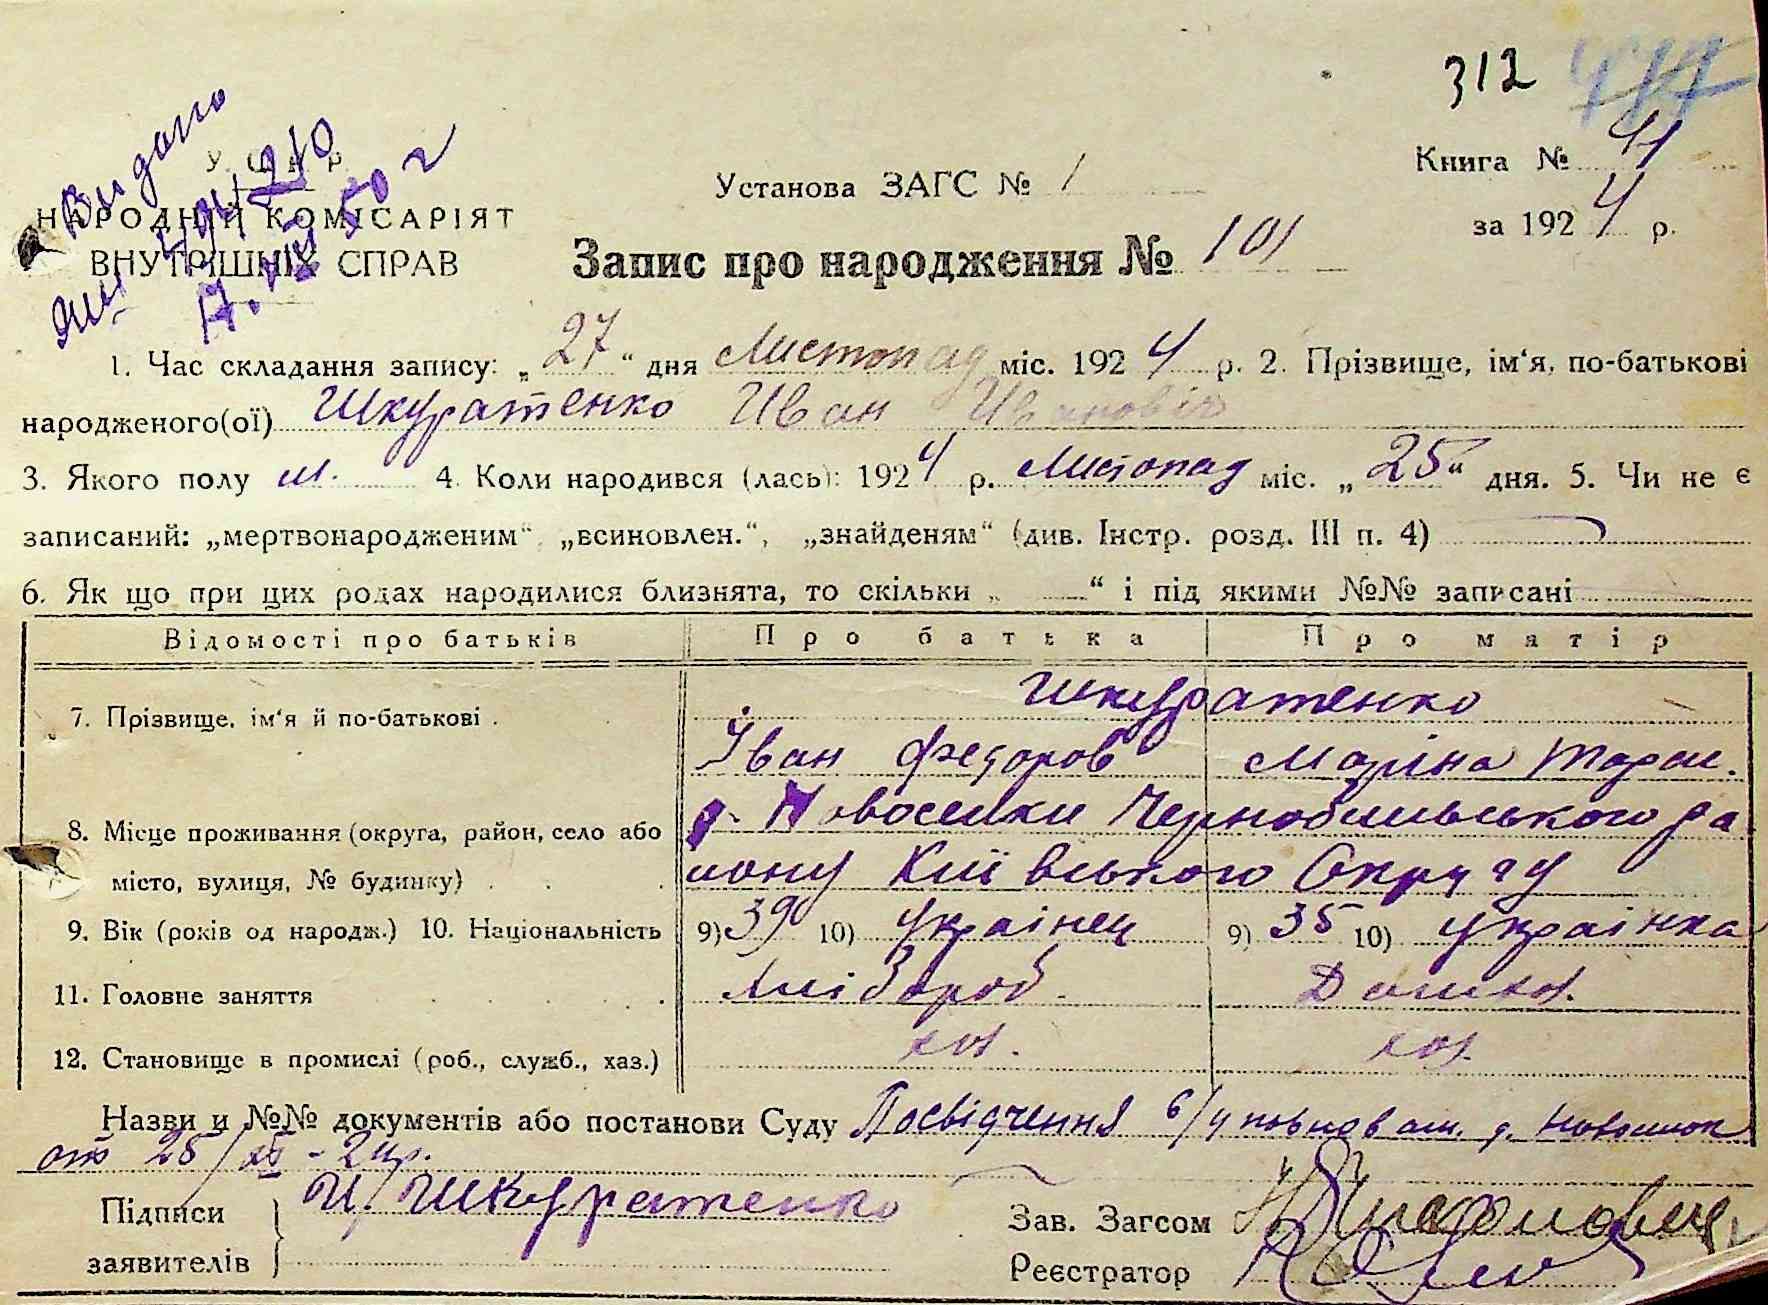 312 417
Видано
494210
17. VII 50 г
У. С. Р. Р.
НАРОДНІЙ КОМІСАРІЯТ
ВНУТРІШНІХ СПРАВ
Установа ЗАГС № 1
Книга № 41
за 1924 р.
Запис про народження № 101
1. Час складання запису: „27“ дня Листопад міс. 1924 р. 2. Прізвище, ім‘я, по-батькові
народженого(ої) Шкуратенко Иван Ивановіч
3. Якого полу м. 4. Коли народився (лась): 1924 р. Листопад міс. „25“ дня. 5. Чи не є
записаний: „мертвонародженим“, „всиновлен.“, „знайденям“ (див. Інстр. розд. III п. 4)
6. Як що при цих родах народилися близнята, то скільки „ “ і під якими №№ записані
Відомості про батьків Про батька Про матір
7. Прізвище, ім‘я й по-батькові . Шкуратенко
Іван Федоров Маріна Тарас.
8. Місце проживання (округа, район, село або д. Новоселки Чернобильського ра
місто, вулиця, № будинку) . . . иону Київського Округу
9. Вік (років од народж.) 10. Національність 9) 39 10) Українец 9) 35 10) Українка
11. Головне заняття . . . . Хлібороб. Домхоз.
12. Становище в промислі (роб., служб., хаз.) хоз. хоз.
Назви и №№ документів або постанови Суду Посвідчення б/ч д. Новоселок
от 25/XI - 24р.
Підписи
заявителів
И. Шкуратенко
Зав. Загсом
Реєстратор